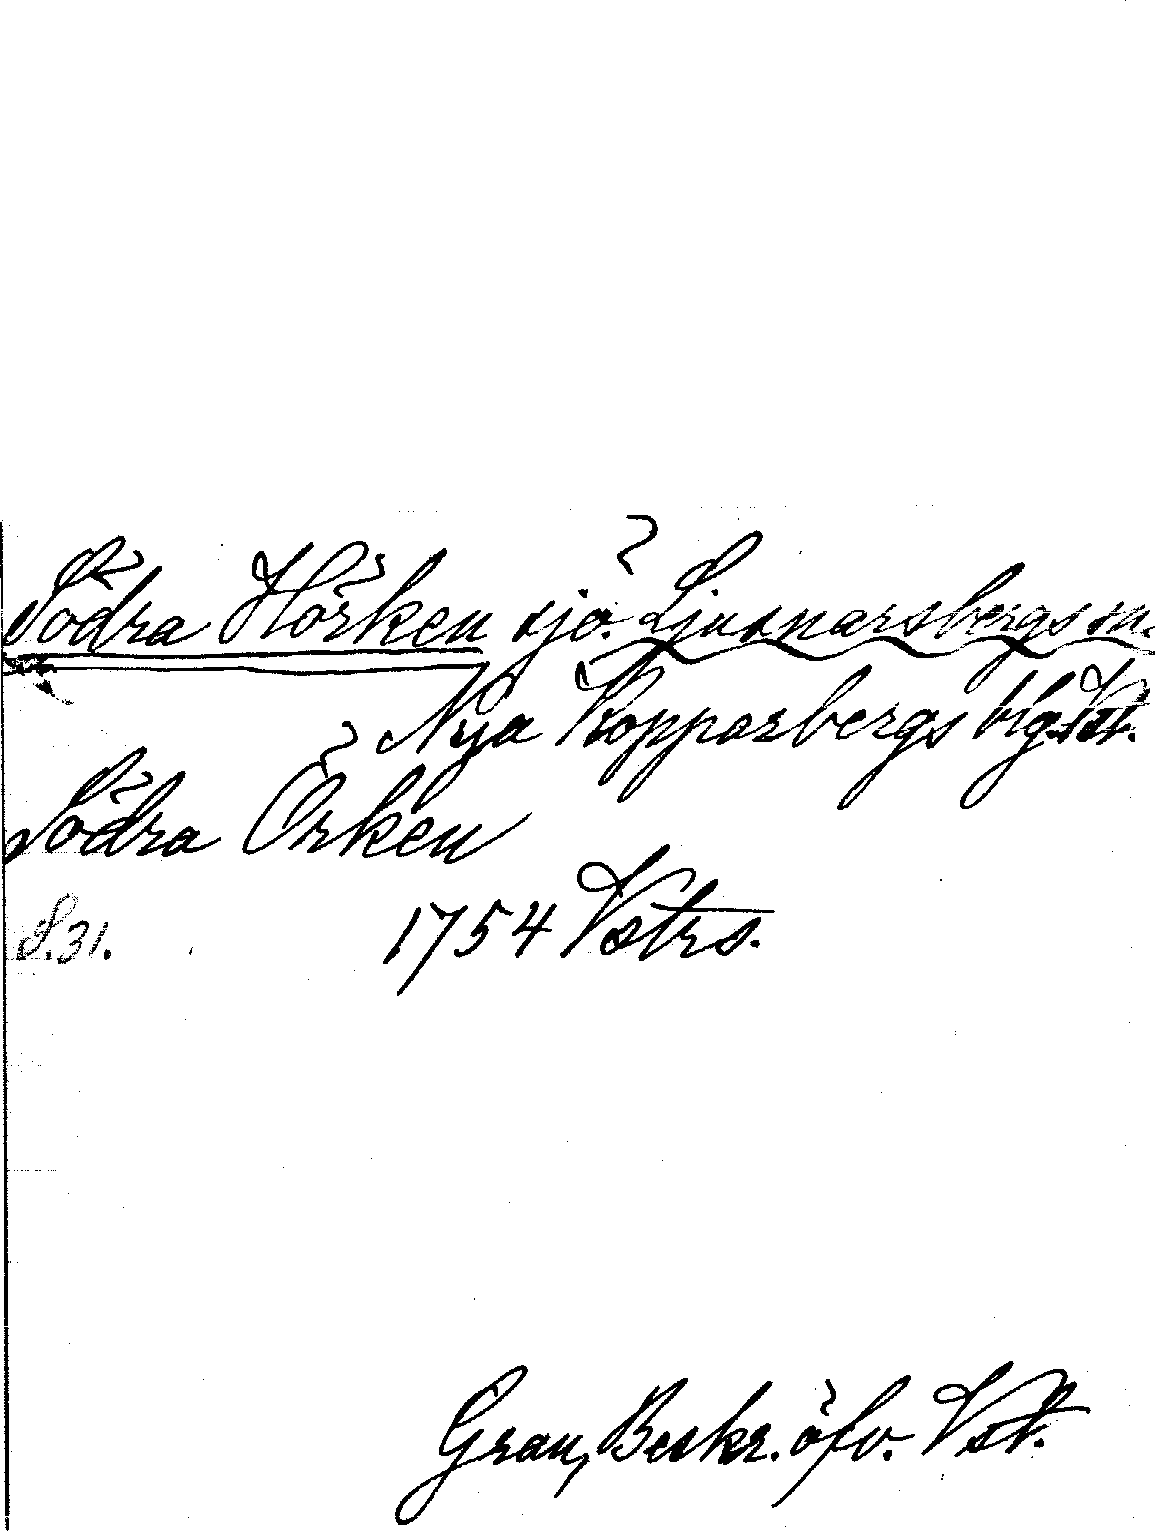 Södra Hörken sjö. Ljusnarsbergs sn.
Nya Kopparbergs blg. Vst.
Södra Örken
S. 31. 1754 Vstrs.
Grau, Beskr. öfv. Vst.